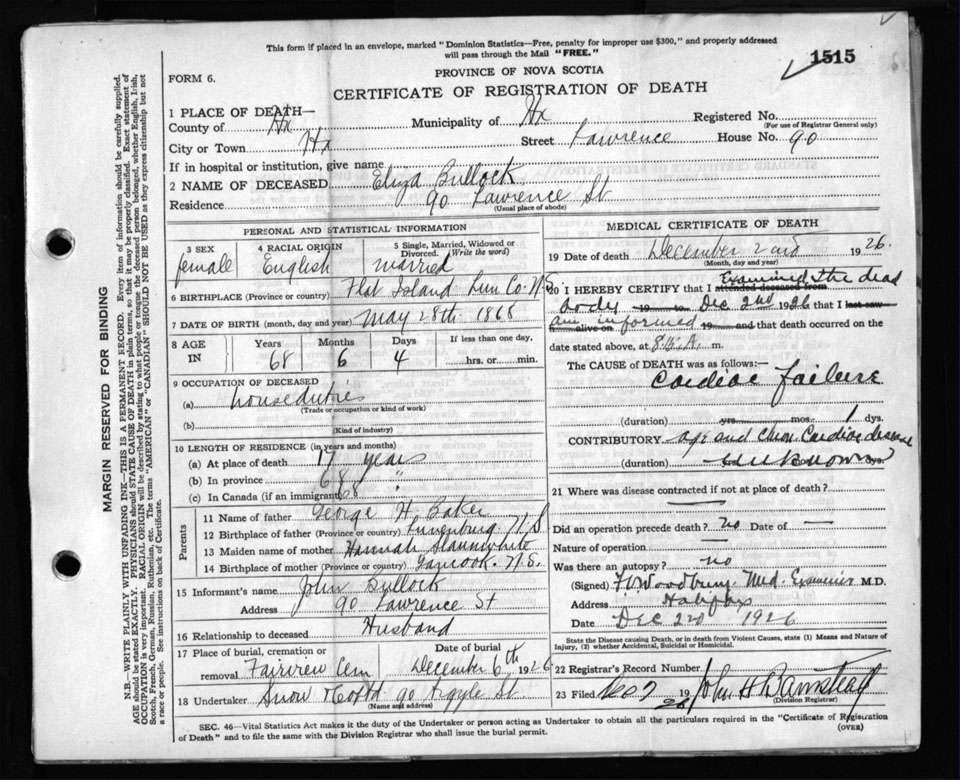 This form if placed in an envelope, marked "Dominion Statistics—Free, penalty for improper use $300," and properly addressed
will pass through the Mail "FREE."
1515
FORM 6.
PROVINCE OF NOVA SCOTIA
CERTIFICATE OF REGISTRATION OF DEATH
1 PLACE OF DEATH—
County of Hx Municipality of Hx Registered No.
(For use of Registrar General only)
City or Town Hx Street Lawrence House No. 90
If in hospital or institution, give name
2 NAME OF DECEASED Eliza Bullock
Residence 90 Lawrence St
(Usual place of abode)
PERSONAL AND STATISTICAL INFORMATION
3 SEX 4 RACIAL ORIGIN 5 Single, Married, Widowed or
Divorced. (Write the word)
female English married
6 BIRTHPLACE (Province or country) Flat Island Lun Co. N.S.
7 DATE OF BIRTH (month, day and year) May 28th 1868
8 AGE IN Years Months Days If less than one day,
68 6 4 hrs. or min.
9 OCCUPATION OF DECEASED
(a) houseduties
(Trade or occupation or kind of work)
(b)
(Kind of industry)
10 LENGTH OF RESIDENCE (in years and months)
(a) At place of death 17 years
(b) In province 68
(c) In Canada (if an immigrant) 68
Parents
11 Name of father George H. Baker
12 Birthplace of father (Province or country) Lunenburg N S
13 Maiden name of mother Hannah Slaunwhite
14 Birthplace of mother (Province or country) Tancook N.S.
15 Informant's name John Bullock
Address 90 Lawrence St
16 Relationship to deceased Husband
17 Place of burial, cremation or Date of burial
removal Fairview Cem December 6th 1926
18 Undertaker Snow & Co Ltd 90 Argyle St
(Name and address)
MEDICAL CERTIFICATE OF DEATH
19 Date of Death December 2nd 1926.
(Month, day and year)
Examined the dead
20 I HEREBY CERTIFY that I attended deceased from
body 19 to Dec 2nd 1926 that I last saw
am informed
alive on 19 and that death occurred on the
date stated above, at 8.15 A. m.
The CAUSE OF DEATH was as follows:—
Cardiac failure
(duration) yrs. mos. 1 dys.
CONTRIBUTORY age and chron. Cardiac disease
(duration) unknown dys.
21 Where was disease contracted if not at place of death?
Did an operation precede death? no Date of —
Nature of operation —
Was there an autopsy? no
(Signed) Woodbury Med. Examiner M.D.
Address Halifax
Date Dec 2nd 1926
State the Disease causing Death, or in death from Violent Causes, state (1) Means and Nature of
Injury, (2) whether Accidental, Suicidal or Homicidal.
22 Registrar's Record Number
23 Filed Dec 7 1926 John H Barnstead
(Division Registrar)
SEC. 46—Vital Statistics Act makes it the duty of the Undertaker or person acting as Undertaker to obtain all the particulars required in the "Certificate of Registration
of Death" and to file the same with the Division Registrar who shall issue the burial permit.
(OVER)
MARGIN RESERVED FOR BINDING
N.B.—WRITE PLAINLY WITH UNFADING INK—THIS IS A PERMANENT RECORD. Every item of information should be carefully supplied.
AGE should be stated EXACTLY. PHYSICIANS should STATE CAUSE OF DEATH in plain terms, so that it may be properly classified. Exact statement of
OCCUPATION is very important. RACIAL ORIGIN will be described by stating to what people or tongue the deceased person belonged, whether English, Irish,
Scotch, French, German, Russian, Ruthenian, etc. The terms "AMERICAN" or "CANADIAN" SHOULD NOT BE USED as they express citizenship but not
a race or people. See instructions on back of Certificate.